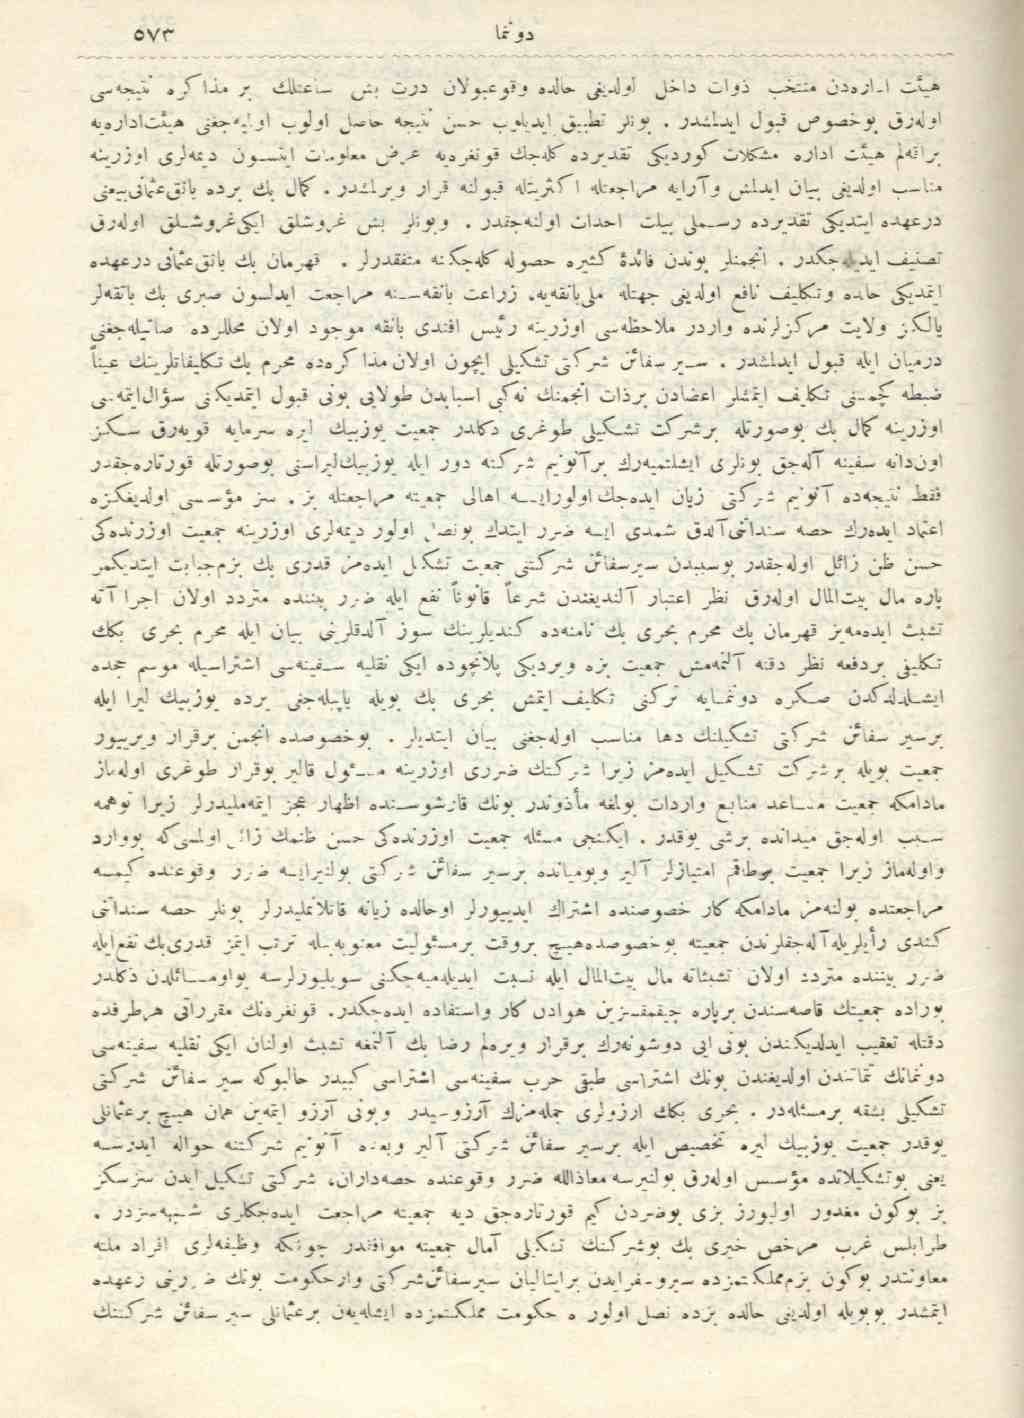 دوننما ٥٧٣
هيئت اداره‌دن منتخب ذوات داخل اولديغى حالده وقوعبولان درت بش ساعتلك بر مذاكره نتيجه‌سى
اوله‌رق بوخصوص قبول ايدلمشدر . بونلر تطبيق ايديلوب حسن نتيجه حاصل اولوب اوليه‌جغنى هيئت‌اداره‌يه
براقه‌لم هيئت اداره مشكلات كورديكى تقديرده كله‌جك قونغره‌يه عرض معلومات ايتسون ديمه‌لرى اوزرينه
مناسب اولديغى بيان ايدلمش وآرايه مراجعتله اكثريتله قبولنه قرار ويرلمشدر . كمال بك برده بانق‌عثمانى‌بيعنى
درعهده ايتديكى تقديرده رسملى بيلت احداث اولنه‌جقدر . وبونلر بش غروشلق ايكى‌غروشلق اوله‌رق
تصنيف ايديله‌جكدر . انجمنلر بوندن فائدهٔ كثيره حصوله كله‌جكنه متفقدرلر . قهرمان بك بانق‌عثمانى درعهده
ايتمديكى حالده وتكليف نافع اولديغى جهتله ملى‌بانقه‌يه، زراعت بانقه‌سنه مراجعت ايدلسون صبرى بك بانقه‌لر
يالكز ولايت مركزلرنده واردر ملاحظه‌سى اوزرينه رئيس افندى بانقه موجود اولان محللرده صاتيله‌جغنى
درميان ايله قبول ايدلمشدر . سير سفائن شركتى تشكيلى ايچون اولان مذاكره‌ده محرم بك تكليفاتلرينك عيناً
ضبطه كچمسنى تكليف ايتمشلر اعضادن برذات انجمنك نه‌كبى اسبابدن طولايى بونى قبول ايتمديكنى سؤال‌ايتمه‌سى
اوزرينه كمال بك بوصورتله برشركت تشكيلى طوغرى دكلدر جمعيت يوزبيك ليره سرمايه قويه‌رق سكز
اون‌دانه سفينه آله‌جق بونلرى ايشلتميه‌رك برآنونيم شركته دور ايله يوزبيك‌ليراسنى بوصورتله قورتاره‌جقدر
فقط نتيجه‌ده آنونيم شركتى زيان ايده‌جك‌اولورايسه اهالى جمعيته مراجعتله بز، سز مؤسسى اولديغكزه
اعتماد ايده‌رك حصه سنداتنى‌آلدق شمدى ايسه ضرر ايتدك بونصل اولور ديمه‌لرى اوزرينه جمعيت اوزرنده‌كى
حسن ظن زائل اوله‌جقدر بوسببدن سيرسفائن شركتنى جمعيت تشكيل ايده‌مز قدرى بك بزم‌جبايت ايتديكمز
پاره مال بيت‌المال اوله‌رق نظر اعتبار آلنديغندن شرعاً قانوناً نفع ايله ضرر بيننده متردد اولان اجرا آته
تشبث ايده‌مه‌يز قهرمان بك محرم بحرى بك نامنه‌ده كنديلرينك سوز آلدقلرينى بيان ايله محرم بحرى بكك
تكليفى بردفعه نظر دقته آلنمه‌مش جمعيت بزه ويرديكى پلانچوده ايكى نقليه سفينه‌سى اشتراسيله موسم حجده
ايشلدلدكدن صكره دوننمايه تركنى تكليف ايتمش بحرى بك بويله ياپيله‌جغى برده يوزبيك ليرا ايله
برسير سفائن شركتى تشكيلنك دها مناسب اوله‌جغنى بيان ايتديلر . بوخصوصده انجمن برقرار ويرييور
جمعيت بويله برشركت تشكيل ايده‌مز زيرا شركتك ضررى اوزرينه مسئول قالير بوقرار طوغرى اوله‌ماز
مادامكه جمعيت مساعد منابع واردات بولمغه مأذوندر بونك قارشوسنده اظهار عجز ايتمه‌مليدرلر زيرا توهمه
سبب اوله‌جق ميدانده برشى يوقدر . ايكنجى مسئله جمعيت اوزرنده‌كى حسن ظنمك زائل اولمسى‌كه بووارد
واوله‌ماز زيرا جمعيت برطاقم امتيازلر آلير وبوميانده برسير سفائن شركتى بولنيرايسه ضرر وقوعنده كيمسه
مراجعتده بولنه‌مز مادامكه كار خصوصنده اشتراك ايدييورلر اوحالده زيانه قاتلانمليدرلر بونلر حصه سنداتنى
كندى رأيلريله‌آله‌جقلرندن جمعيته بوخصوصده‌هيچ بروقت برمسئوليت معنويه‌بيله ترتب ايتمز قدرى‌بك نفع‌ايله
ضرر بيننده متردد اولان تشبثاته مال بيت‌المال ايله نسبت ايديله‌ميه‌جكنى سويليورلرسه بواومسائلدن دكلدر
بوراده جمعيتك قاصه‌سندن برپاره چيقمقسزين هوادن كار واستفاده ايده‌جكدر. قونغره‌نك مقرراتى هرطرفده
دقتله تعقيب ايدلديكندن بونى ايى دوشونه‌رك برقرار ويره‌لم رضا بك آلنمغه تشبث اولنان ايكى نقليه سفينه‌سى
دوننمانك تتماتندن اولديغندن بونك اشتراسى طبقى حرب سفينه‌سى اشتراسى كبيدر حالبوكه سير سفائن شركتى
تشكيلى بشقه برمسئله‌در . بحرى بكك ارزولرى جمله‌مزك آرزوسيدر وبونى آرزو ايتمه‌ين همان هيچ برعثمانلى
يوقدر جمعيت يوزبيك ليره تخصيص ايله برسير سفائن شركتى آلير وبعده آنونيم شركتنه حواله ايدرسه
يعنى بوتشكيلاتده مؤسس اوله‌رق بولنيرسه معاذالله ضرر وقوعنده حصه‌داران، شركتى تشكيل ايدن سزسكز
بز بوكون مغدور اوليورز بزى بوضردن كيم قورتاره‌جق ديه جمعيته مراجعت ايده‌جكلرى شبهه‌سزدر .
طرابلس غرب مرخص خيرى بك بوشركتك تشكيلى آمال جمعيته موافقدر چونكه وظيفه‌لرى افراد ملته
معاونتدر بوكون بزم‌مملكتمزده سيروسفرايدن برايتاليان سيرسفائن‌شركتى وارحكومت بونك ضررينى درعهده
ايتمشدر بوبويله اولديغى حالده بزده نصل اولور ه حكومت مملكتمزده ايشله‌يه‌ن برعثمانلى سير سفائن شركتنك